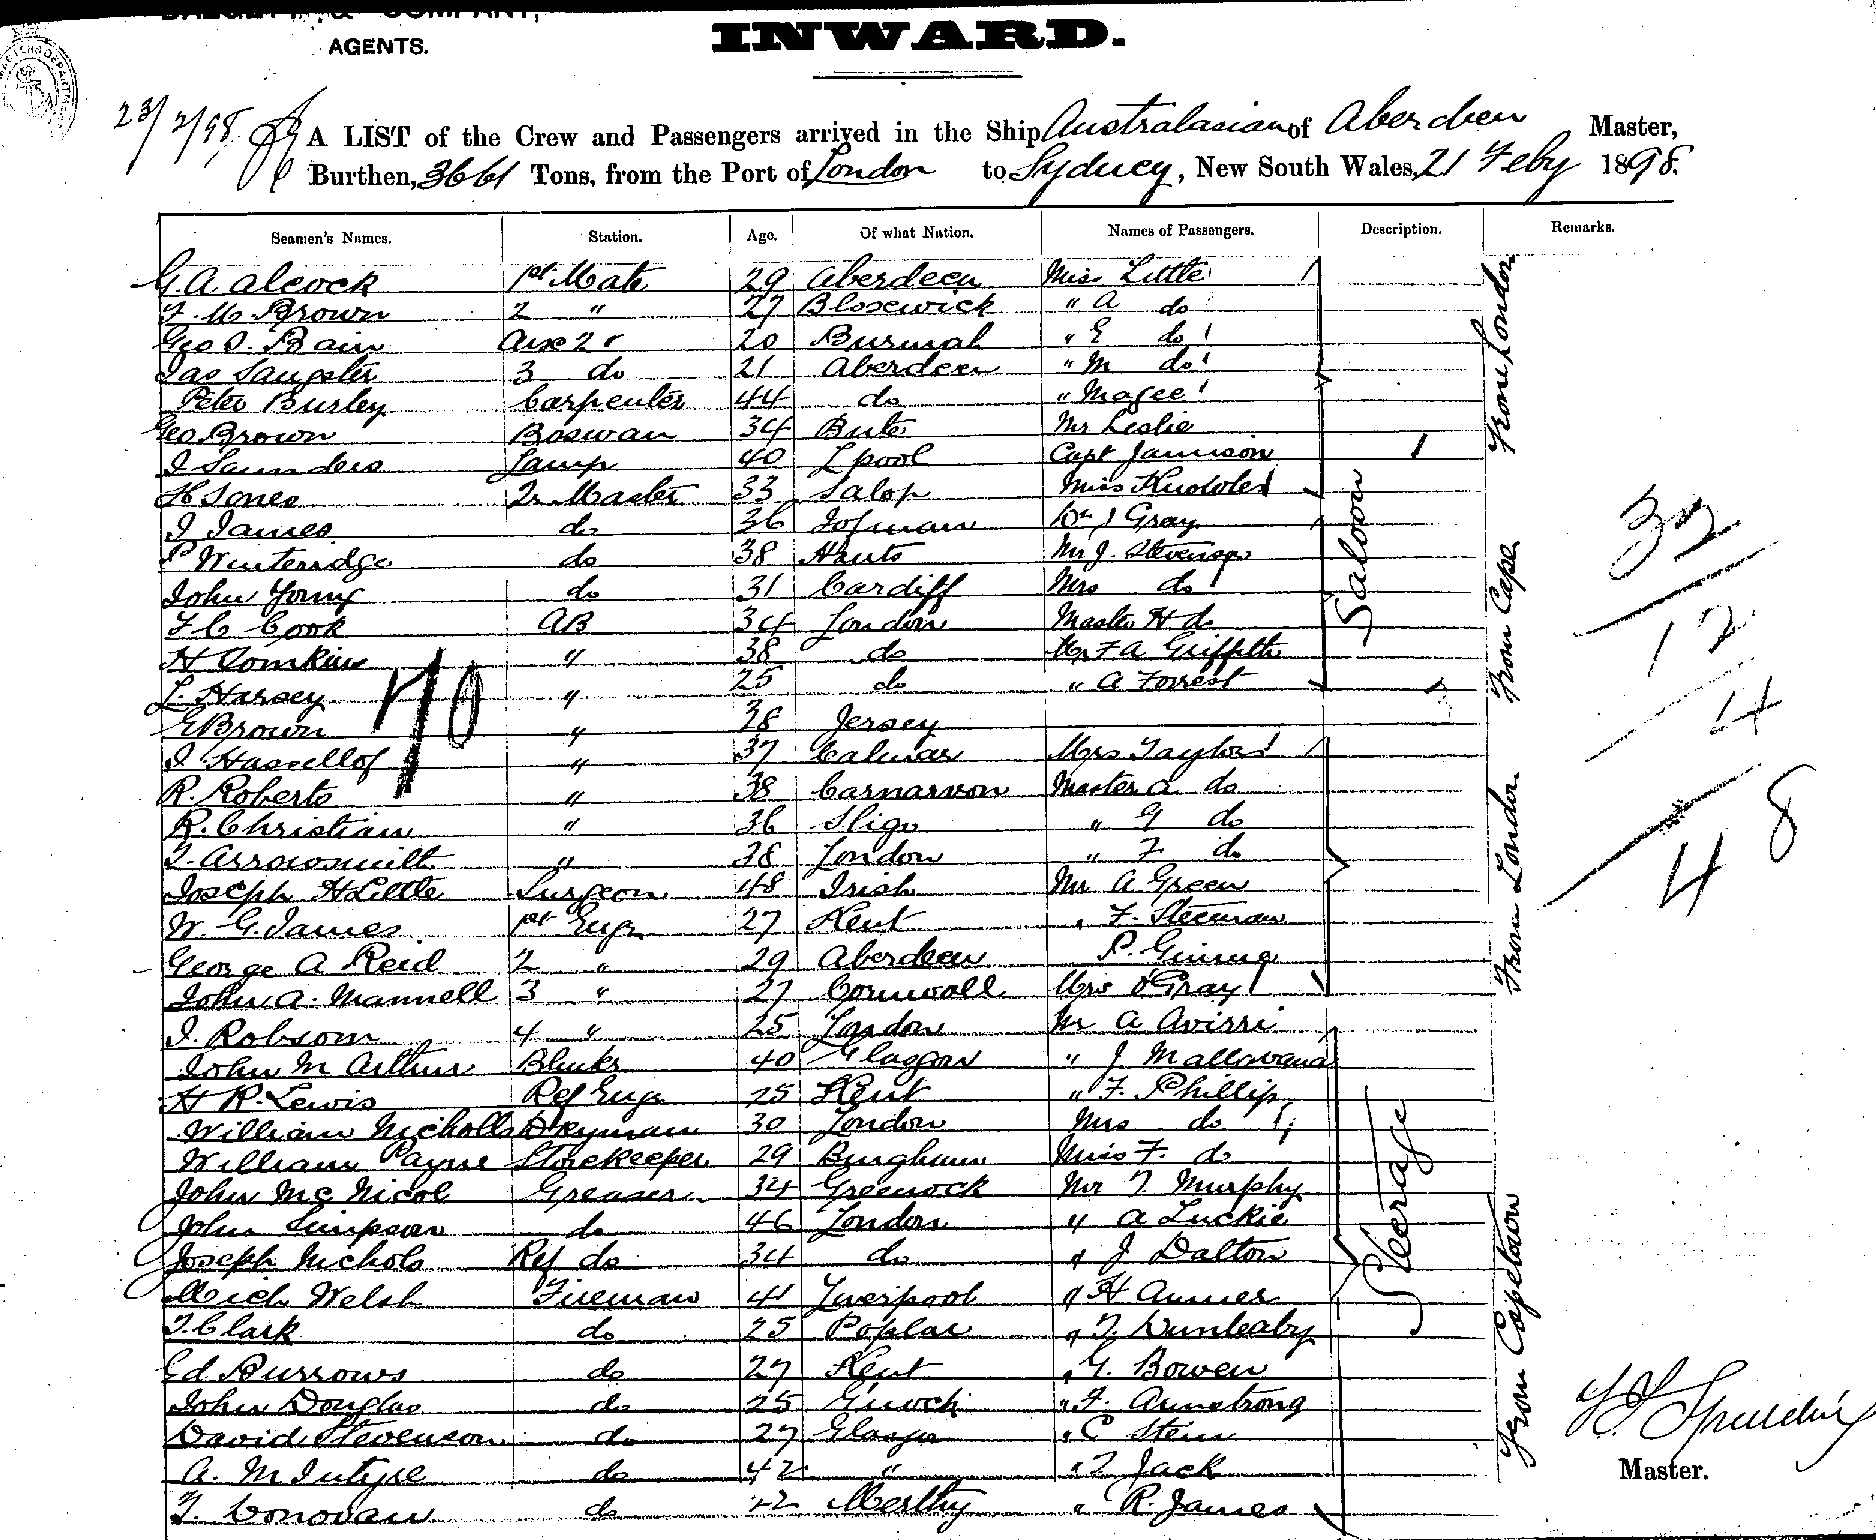 AGENTS.
INWARD.
23/2/98
A LIST of the Crew and Passengers arrived in the Ship Australasian of Aberdeen Master,
Burthen, 3661 Tons, from the Port of London to Sydney, New South Wales, 21 Feby 1898.
Seamen's Names. Station. Age. Of what Nation. Names of Passengers. Description. Remarks.
G. A. Alcock 1st Mate 29 Aberdeen Miss Little
Brown 2 " 27 " A do
Geo Bain 2 20 Burmah " E do
Jas Sangster 3 do 21 Aberdeen " M do
Peter Burley Carpenter 44 do " Magee
Geo Brown Boswan 34 Bute Mr Leslie
J Saunders Lamp 40 Lpool Capt Jamison
H Jones Qr Master 33 Salop Miss
J James do 36 Gray
P Winteridge do 38 Hants Mr J. Stevenson
John Young do 31 Cardiff Mrs do
F C Cook AB 34 London Master H do
H Tomkins " 38 do Mr F A Griffith
L. Harsey " 25 do " A Forrest
E Brown " 38 Jersey
J Hassellof " 37 Calmar Mrs Taylor
R. Roberts " 38 Carnarvon Master A do
R. Christian " 36 Sligo " G do
T. Arrowsmith " 28 London " F do
Joseph H Little Surgeon 48 Irish Mr A Green
W. G. James 1st Engr 27 Kent
George A Reid 2 " 29 Aberdeen P.
John A. Mannell 3 " 27 Cornwall Mrs Gray
J. Robson 4 " 25 London Mr A
John M Arthur 40 Glasgow " J
H R. Lewis Ref Engr 25 Kent " F. Phillip
William Nicholls 30 London Mrs do
William Payne Storekeeper 29 Miss F. do
John Mc Nicol Greaser 34 Greenock Mr T Murphy
John Simpson do 46 London " A Luckie
Joseph Nichols Ref do 34 do " J Dalton
Mich Welsh Fireman 41 Liverpool " H
T. Clark do 25 Poplar " T. Dunleaby
Ed Burrows do 27 Kent " G. Bowen
John Douglas do 25 " F. Armstrong
David Stevenson do 27 Glasgow " C Stein
A. McIntyre do 42 " " T Jack
T. Donovan do 22 Merthy " R. James
70
Saloon
Steerage
From London
From Cape
From London
From Capetown
32
12
4
48
Master.